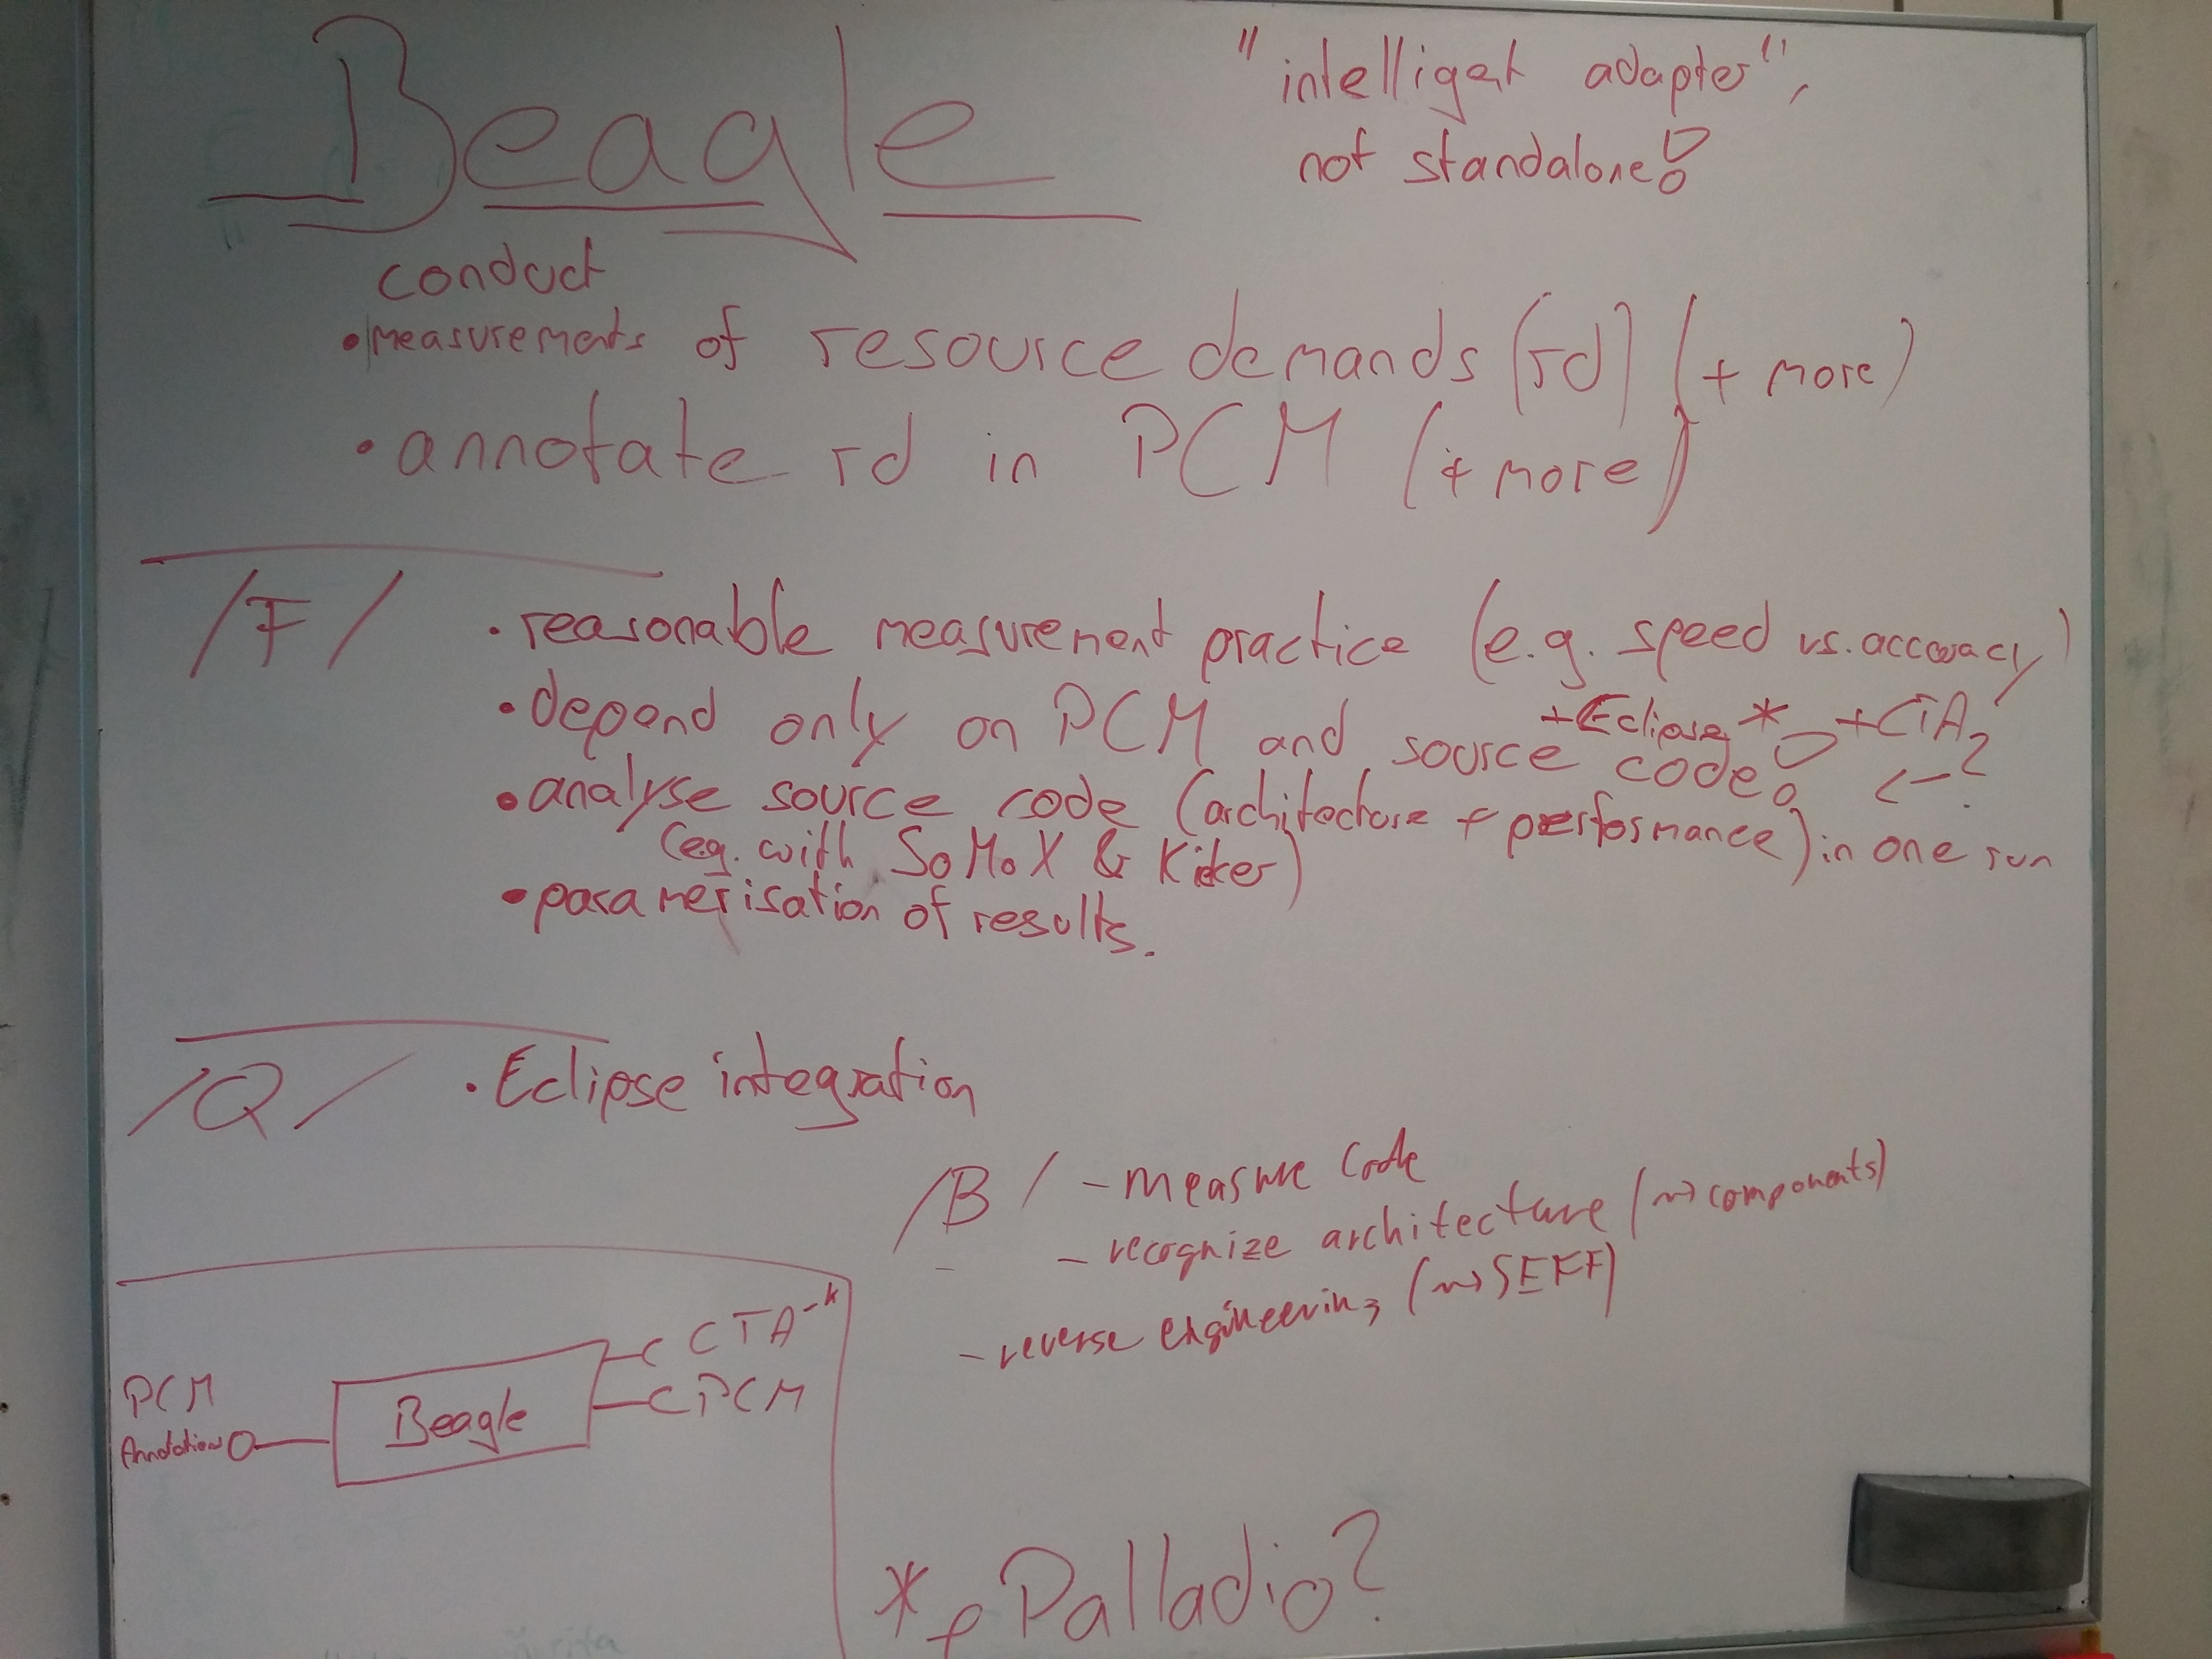 Beagle
"intelligent adapter",
not standalone!
conduct
• measurements of resource demands [rd] (+ more)
• annotate rd in PCM (+ more)
/F/
• reasonable measurement practice (e.g. speed vs. accuracy)
+Eclipse * +CTA?
• depend only on PCM and source code! <-?
• analyse source code (architecture + performance) in one run
(eg. with SoMoX & Kieker)
• paramerisation of results.
/Q/ • Eclipse integration
/B/ - measure code
- recognize architecture (~> components)
- reverse engineering (~> SEFF)
CTA-k
PCM
PCM
Annotation
Beagle
* Palladio?